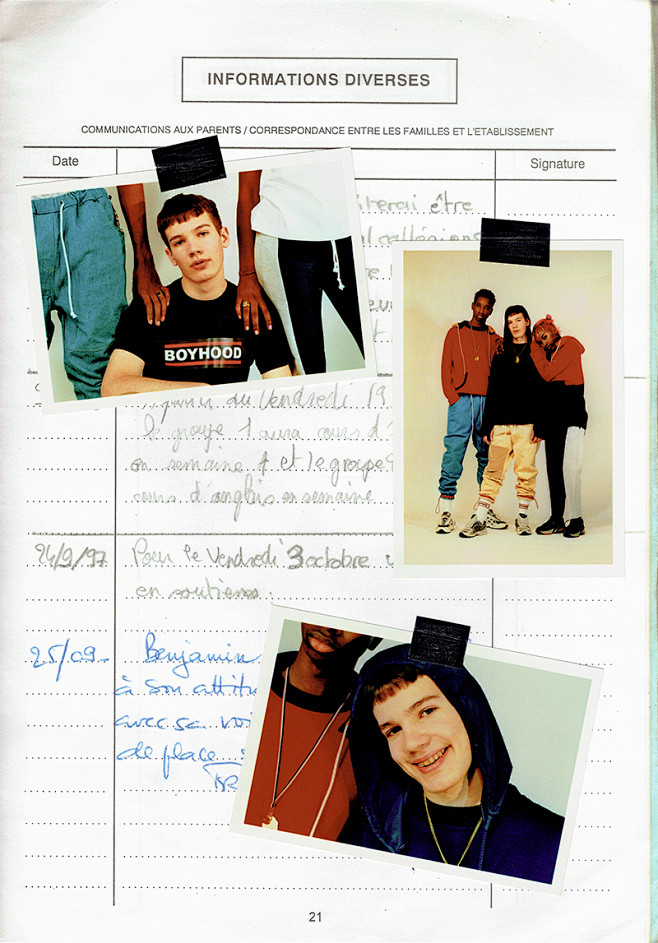 INFORMATIONS DIVERSES
COMMUNICATIONS AUX PARENTS / CORRESPONDANCE ENTRE LES FAMILLES ET L'ETABLISSEMENT
Date
Signature
être
BOYHOOD
du Vendredi 19
le groupe 1 aura cours d'
en semaine 1 et le groupe
cours d'anglais en semaine
24/9/97
Pour le Vendredi 3 octobre
en soutiens.
25/09-
Benjamin
à son attitu
avec sa voi
de place
21